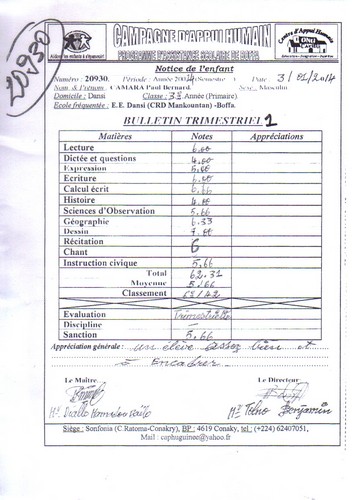 20930
CAMPAGNE D'APPUI HUMAIN
PROGRAMME D'ASSISTANCE SCOLAIRE DE BOFFA
Notice de l'enfant
Numéro : 20930. Période : Année 2004 (Semestre Date : 3/01/2014
Nom & Prénom CAMARA Paul Bernard Sexe Masculin
Domicile : Dansi Classe : 3è Année (Primaire)
Ecole fréquentée : E.E. Dansi (CRD Mankountan) -Boffa.
BULLETIN TRIMESTRIEL 1
Matières Notes Appréciations
Lecture 6.00
Dictée et questions 4.00
Expression 5.00
Ecriture 6.00
Calcul écrit 6.66
Histoire 4.00
Sciences d'Observation 5.66
Géographie 6.33
Dessin 7.00
Récitation 6
Chant
Instruction civique 5.66
Total 62.31
Moyenne 5/66
Classement /42
Evaluation Trimestrielle
Discipline —
Sanction 5.66
Appréciation générale : un élève assez bien et
à Encadrer
Le Maître. Le Directeur
Mr Diallo Mr Tolno Benjamin
Siège : Sonfonia (C.Ratoma-Conakry), BP : 4619 Conaky, tel : (+224) 62407051,
Mail : caphuguinee@yahoo.fr